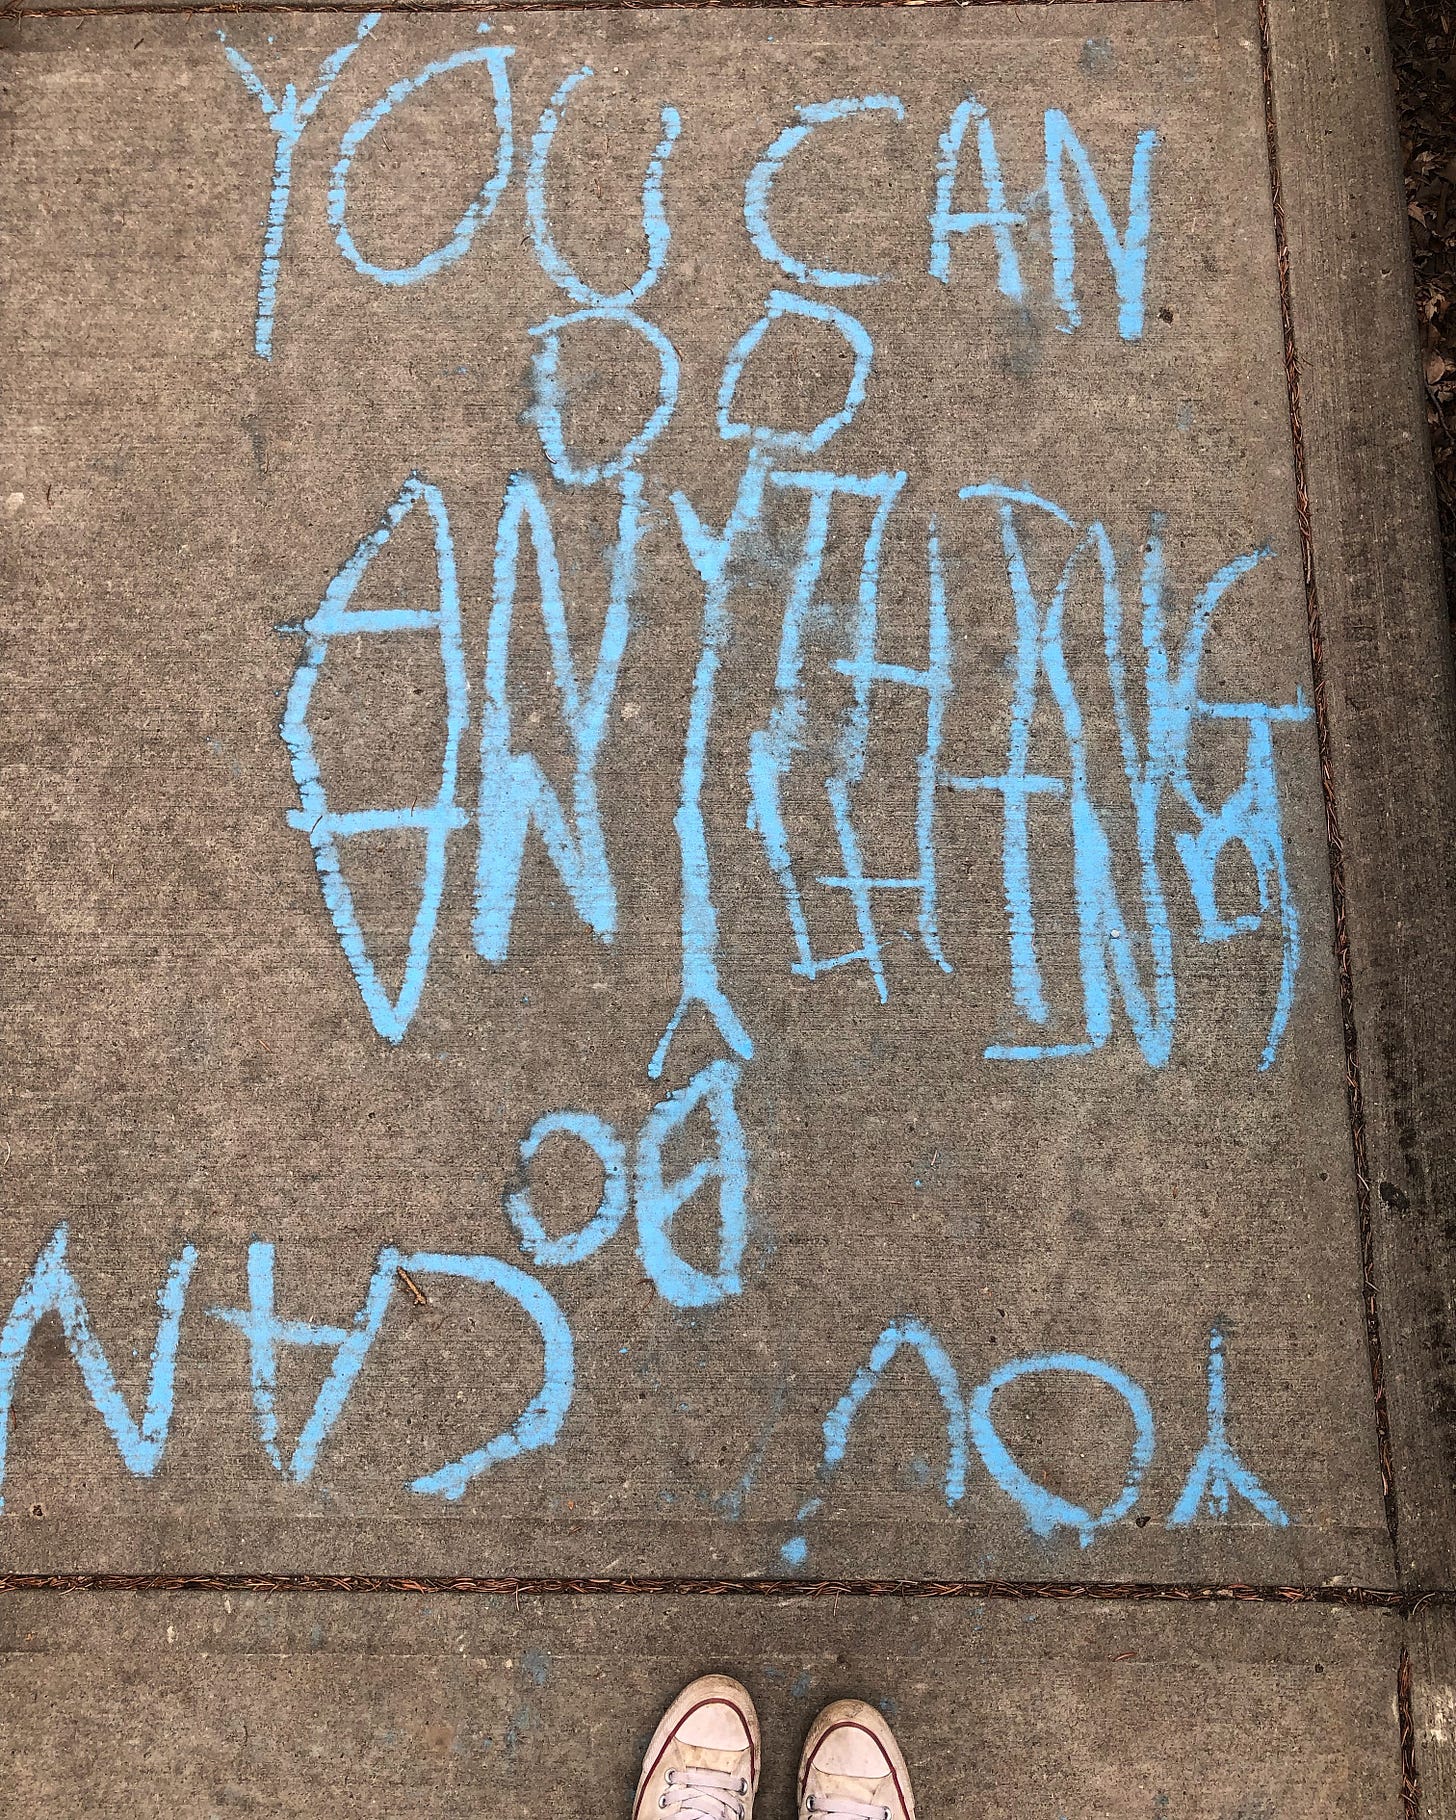 YOU CAN
DO
ANYTHING
YOU CAN
DO
ANYTHING